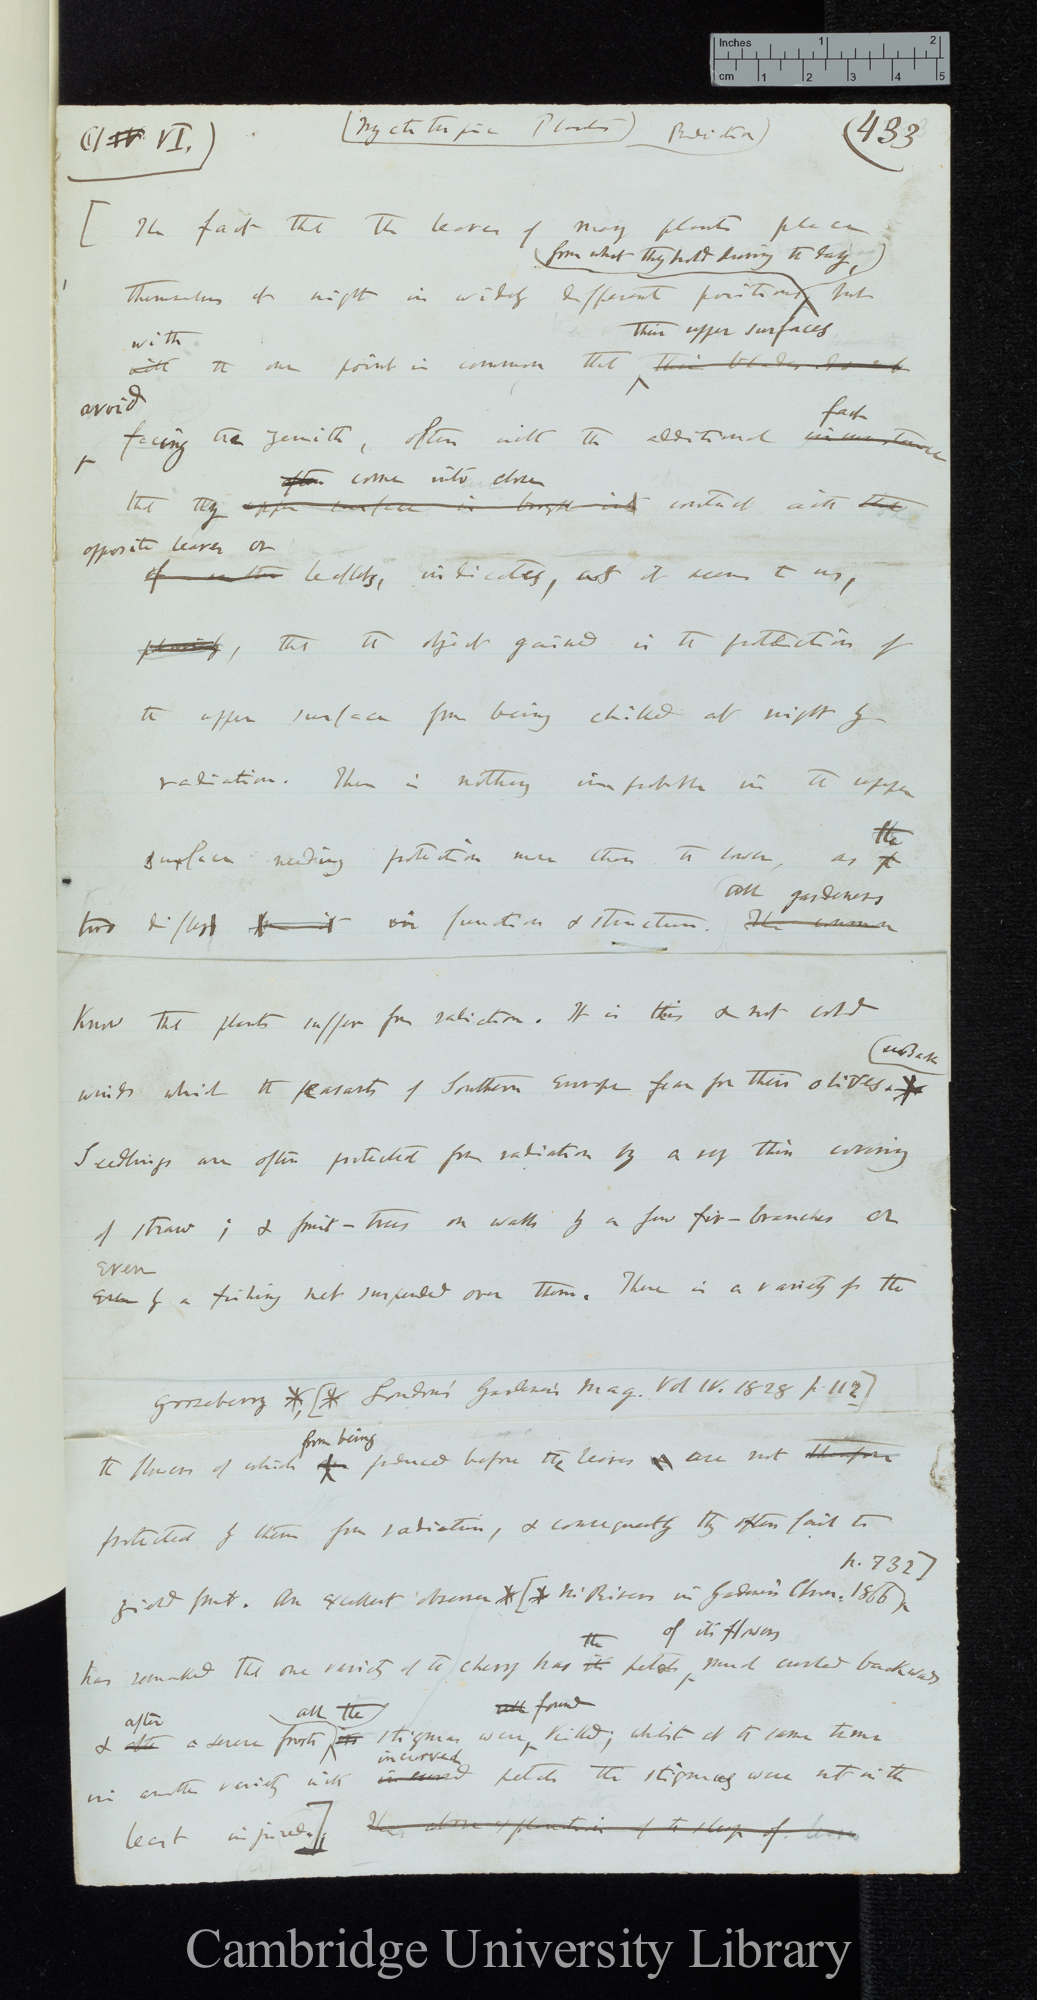 Inches 1 2
cm 1 2 3 4 5
Ch IV VI.) (Nyctitropic Plants) Radiation) (433
[ The fact that the leaves of many plants place
(from what they hold during the day,)
themselves at night in widely different positions, but
with their upper surfaces
with the one point in common that their blades do not
avoid fact
facing the zenith, often with the additional circumstance
often come into close
that they upper surface is brought into contact with that
opposite leaves or
of another leaflets, indicates, as it seems to us,
plainly, that the object gained is the protection of
the upper surface from being chilled at night by
radiation. There is nothing improbable in the upper
the
surface needing protection more than the lower, as
(all gardeners
two differ in function & structure. The common
Know that plants suffer from radiation. It is this & not cold
(see Back
winds which the peasants of Southern Europe fear for their olives. *
Seedlings are often protected from radiation by a very thin covering
of straw; & fruit-trees on walls by a few fir-branches or
even
even by a fishing net suspended over them. There is a variety of the
gooseberry *, [* Loudon's Gardener's Mag. Vol IV. 1828 p. 112]
from being
the flowers of which produced before the leaves are not therefore
protected by them from radiation, & consequently they often fail to
p. 732]
yield fruit. An excellent observer *[* Mr Rivers in Gardener's Chron. 1866,
the of its flowers
has remarked that one variety of the cherry has its petals much curled backwards
after all the all found
& after a severe frost, its stigmas were killed; whilst at the same time
incurved
in another variety with incurved petals the stigmas were not in the
least injured.] The above explanation of the sleep of leaves
Cambridge University Library